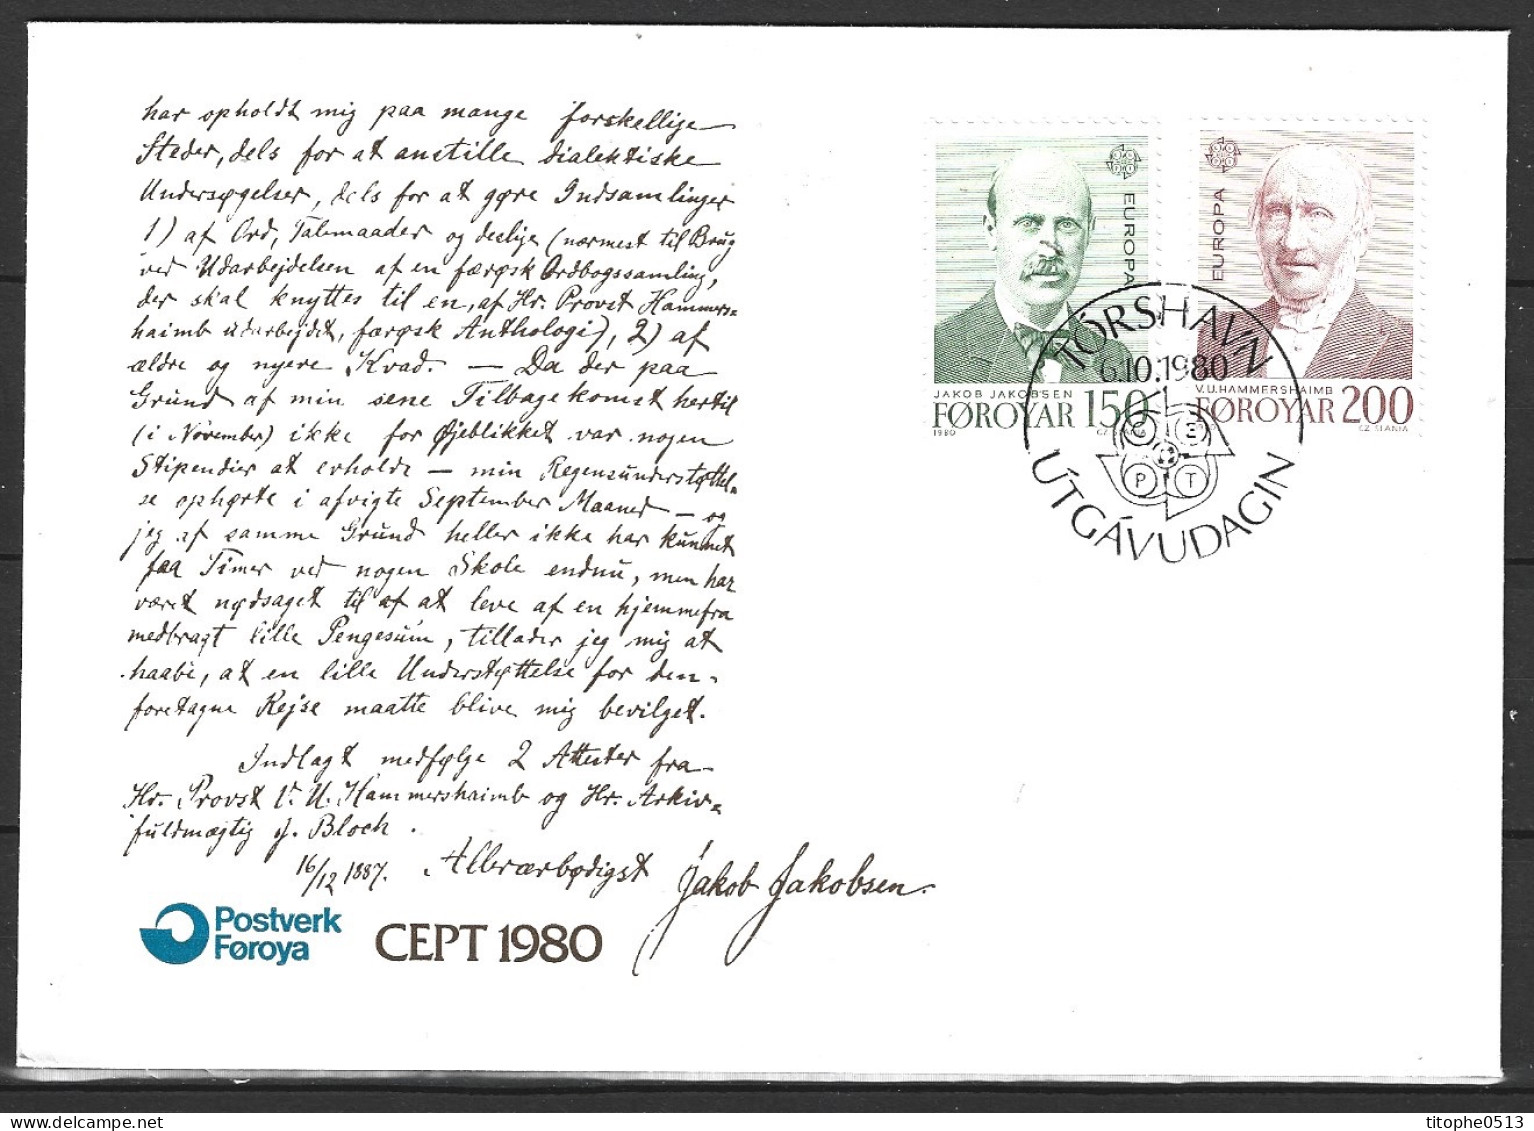 har opholdt mig paa mange forskellige
Steder, dels for at anstille dialektiske
Undersøgelser, dels for at gøre Indsamlinger
1) af Ord, Talemaader og deslige (nærmest til Brug
ved Udarbejdelsen af en færøsk Ordbogssamling,
der skal knyttes til en, af Hr. Provst Hammers=
haimb udarbejdet, færøsk Anthologi), 2) af
ældre og nyere Kvad. — Da der paa
Grund af min sene Tilbagekomst hertil
(i November) ikke for Øjeblikket var nogen
Stipendier at erholde — min Regensunderstøttel=
se ophørte i afvigte September Maaned — og
jeg af samme Grund heller ikke har kunnet
faa Timer ved nogen Skole endnu, men har
været nødsaget til at leve af en hjemmefra
medbragt lille Pengesum, tillader jeg mig at
haabe, at en lille Understøttelse for den
foretagne Rejse maatte blive mig bevilget.
Indlagt medfølge 2 Attester fra
Hr. Provst V. U. Hammershaimb og Hr. Arkiv=
fuldmægtig J. Bloch.
16/12 1887. Allerærbødigst Jakob Jakobsen.
Postverk
Føroya
CEPT 1980
EUROPA
JAKOB JAKOBSEN
FØROYAR 150
1980 CZ SLANIA
EUROPA
V.U. HAMMERSHAIMB
FØROYAR 200
CZ SLANIA
TÓRSHAVN
6.10.1980
C E
P T
ÚTGÁVUDAGIN
titophe0513